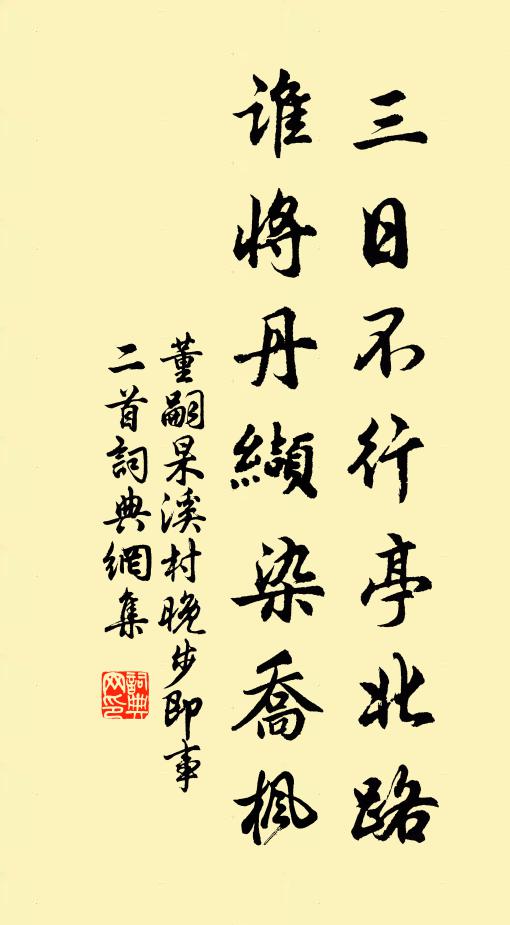 三日不行亭北路
谁将丹纈染喬楓
董嗣杲溪村晚步即事
二首詞典網集
詞典網印